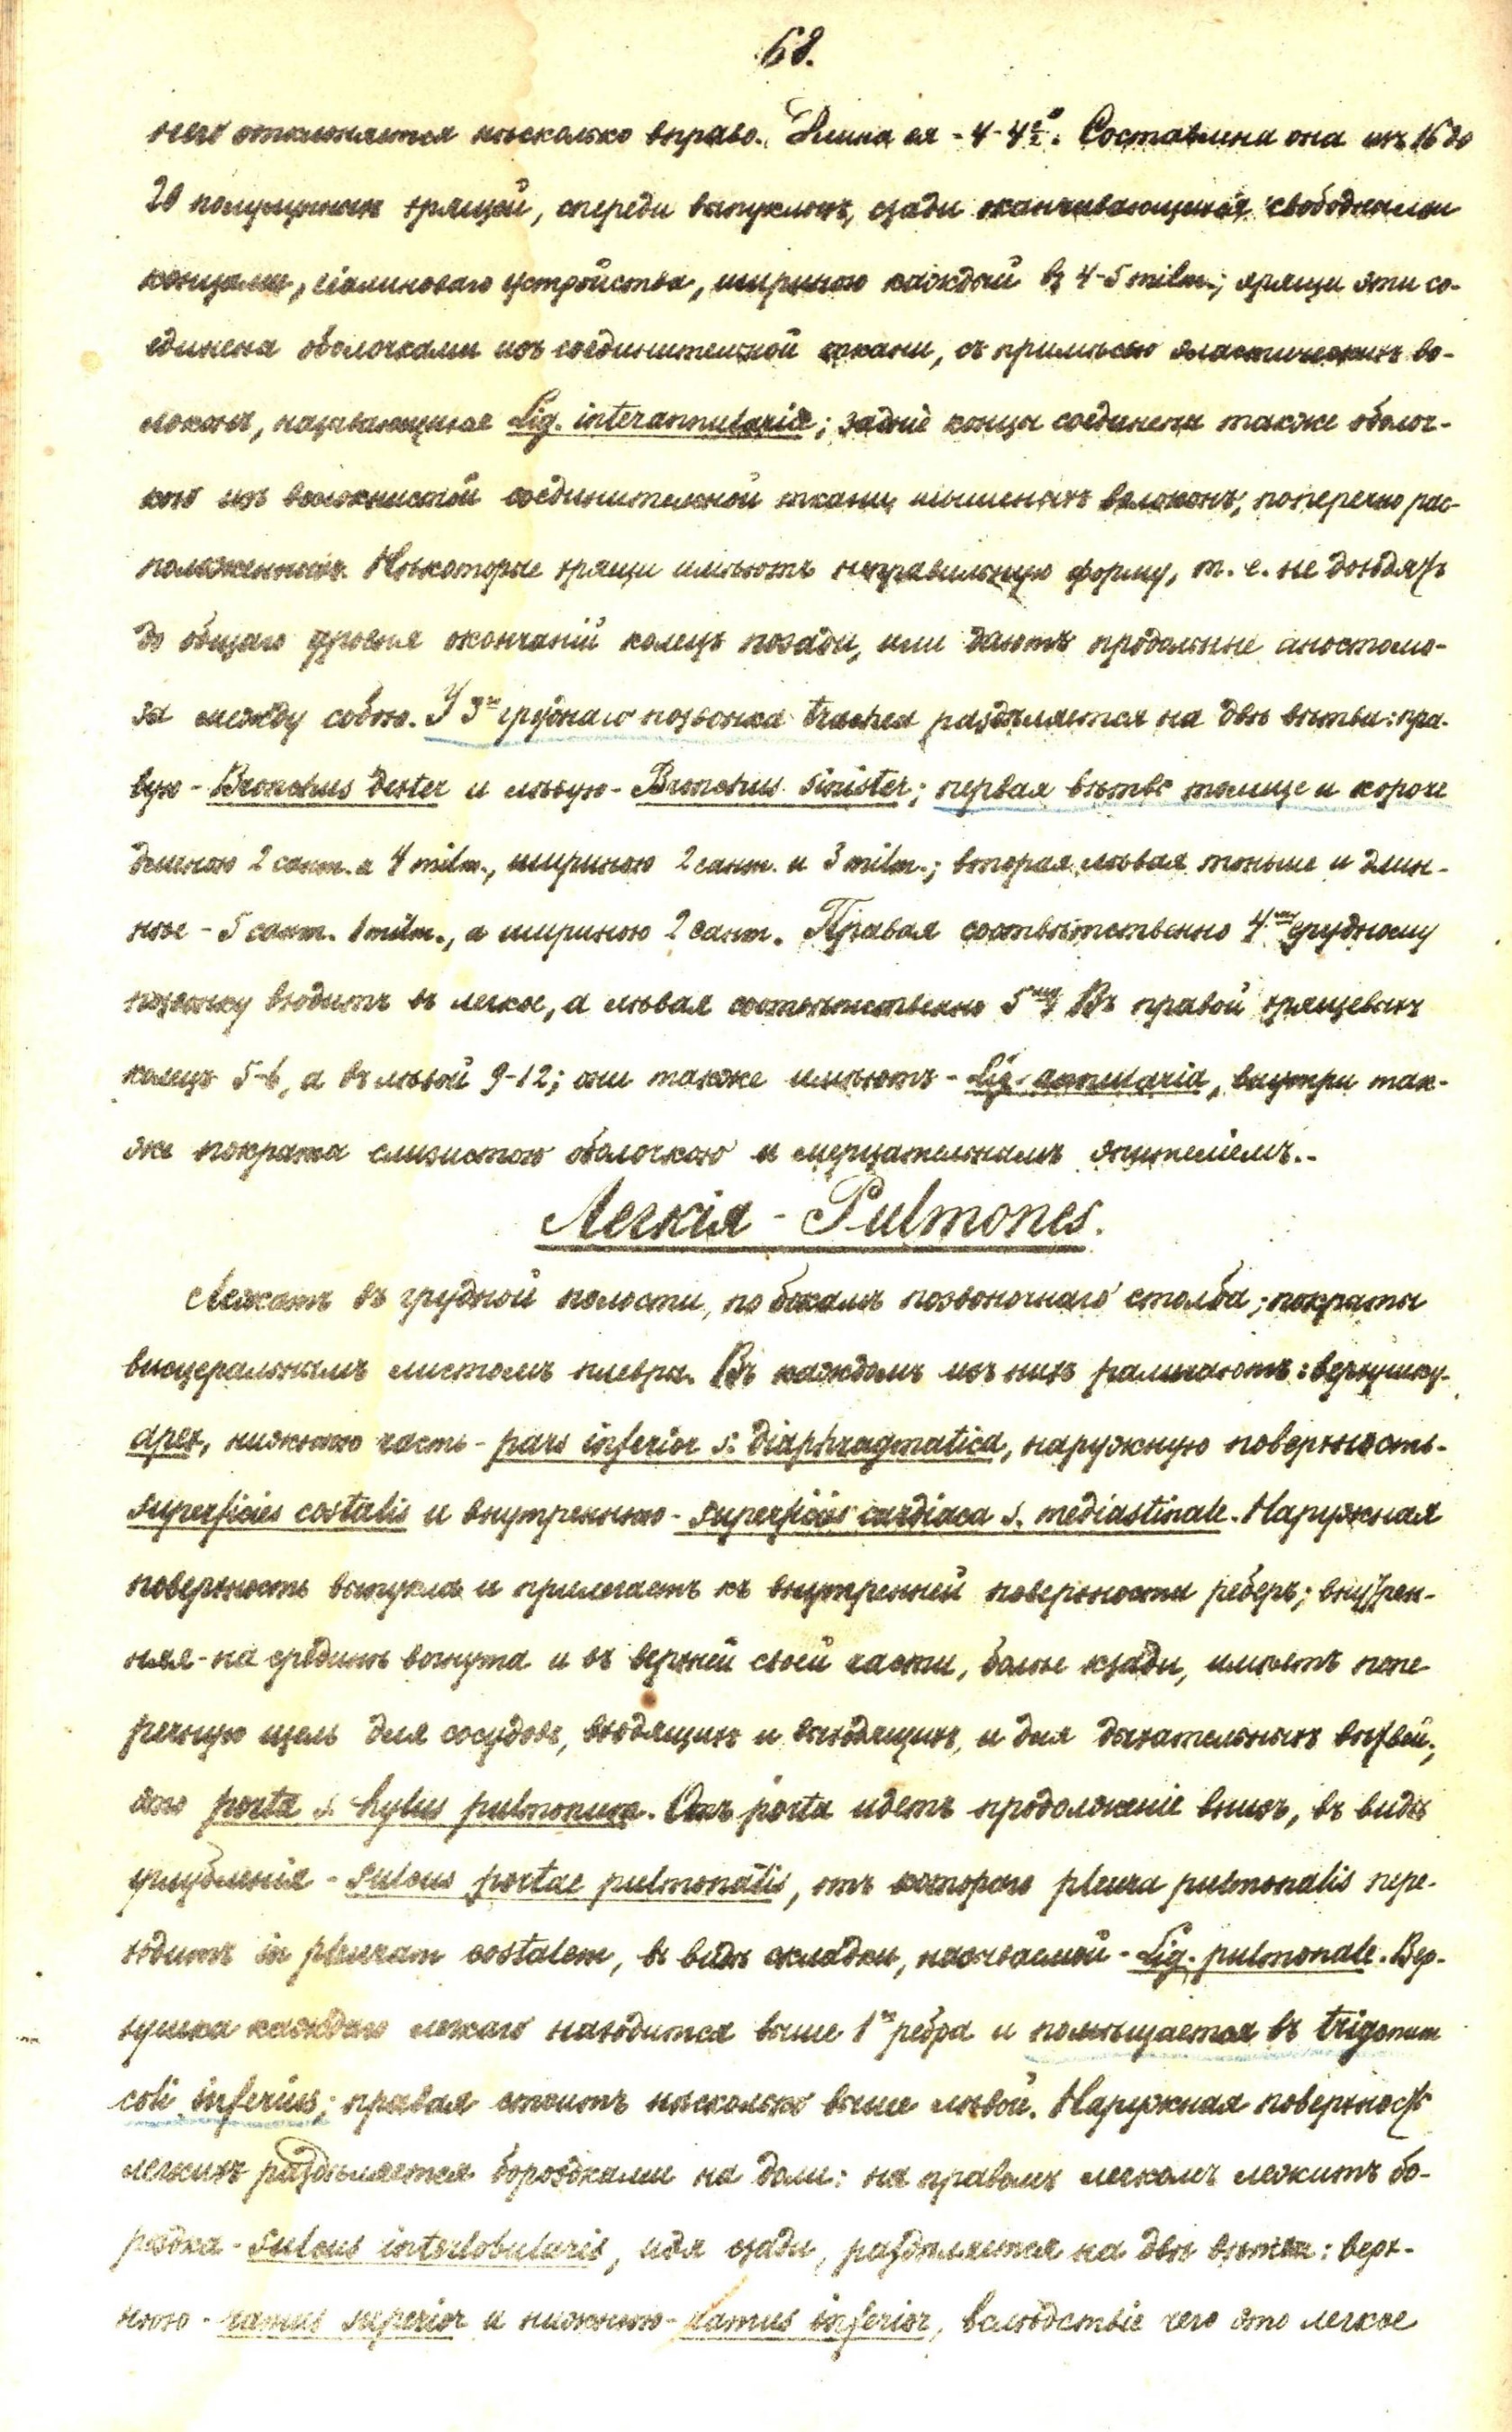 68.
него отклоняется нѣсколько вправо. Длина ея - 4-4½". Составлена она изъ 16 до
20 полулунныхъ хрящей, спереди выпуклыхъ, сзади оканчивающихся свободными
концами, гіалиноваго устройства, шириною каждый въ 4-5 milm.; хрящи эти со-
единены оболочками изъ соединительной ткани, съ примѣсью эластическихъ во-
локонъ, называющимися Lig. interannularia; задніе концы соединены также оболоч-
кою изъ волокнистой соединительной ткани мышечныхъ волоконъ, поперечно рас-
положенныхъ. Нѣкоторые хрящи имѣютъ неправильную форму, т. е. не доходятъ
до общаго уровня окончаній колецъ позади, или даютъ продольные аностомо-
зы между собою. У 3го груднаго позвонка trachea раздѣляется на двѣ вѣтви: пра-
вую - Bronchus dexter и лѣвую - Bronchus sinister; первая вѣтвь толще и короче
длиною 2 сант. и 4 milm., шириною 2 сант. и 3 milm.; вторая, лѣвая тоньше и длин-
нѣе - 5 сант. 1 milm., а шириною 2 сант. Правая соотвѣтственно 4му грудному
позвонку входитъ въ легкое, а лѣвая соотвѣтственно 5му. Въ правой хрящевыхъ
колецъ 5-6, а въ лѣвой 9-12; они также имѣютъ - Lig. annularia, внутри так-
же покрыта слизистою оболочкою и мерцательнымъ эпителіемъ.-
Легкія - Pulmones.
Лежатъ въ грудной полости, по бокамъ позвоночнаго столба; покрыты
висцеральнымъ листомъ плевры. Въ каждомъ изъ нихъ различаютъ: верхушку-
apex, нижнюю часть - pars inferior s. diaphragmatica, наружную поверхность-
superficies costalis и внутреннюю - superficies cardiaca s. mediastinale. Наружная
поверхность выпукла и прилегаетъ къ внутренней поверхности реберъ; внутрен-
няя - на срединѣ вогнута и въ верхней своей части, болѣе кзади, имѣетъ попе-
речную щель для сосудовъ, входящихъ и выходящихъ, и для дыхательныхъ вѣтвей;
это porta s. hylus pulmonum. Отъ porta идетъ продолженіе внизъ, въ видѣ
углубленія - sulcus portae pulmonalis, отъ котораго pleura pulmonalis пере-
ходитъ in pleuram costalem, въ видѣ складки, называемой - Lig. pulmonale. Вер-
хушка каждаго легкаго находится выше 1го ребра и помѣщается въ trigonum
coli inferius; правая стоитъ нѣсколько выше лѣвой. Наружная поверхность
легкихъ раздѣляется бороздками на доли: на правомъ легкомъ лежитъ бо-
роздка - sulcus interlobularis, идя сзади, раздѣляется на двѣ вѣтви: верх-
нюю - ramus superior и нижнюю - ramus inferior, вслѣдствіе чего это легкое